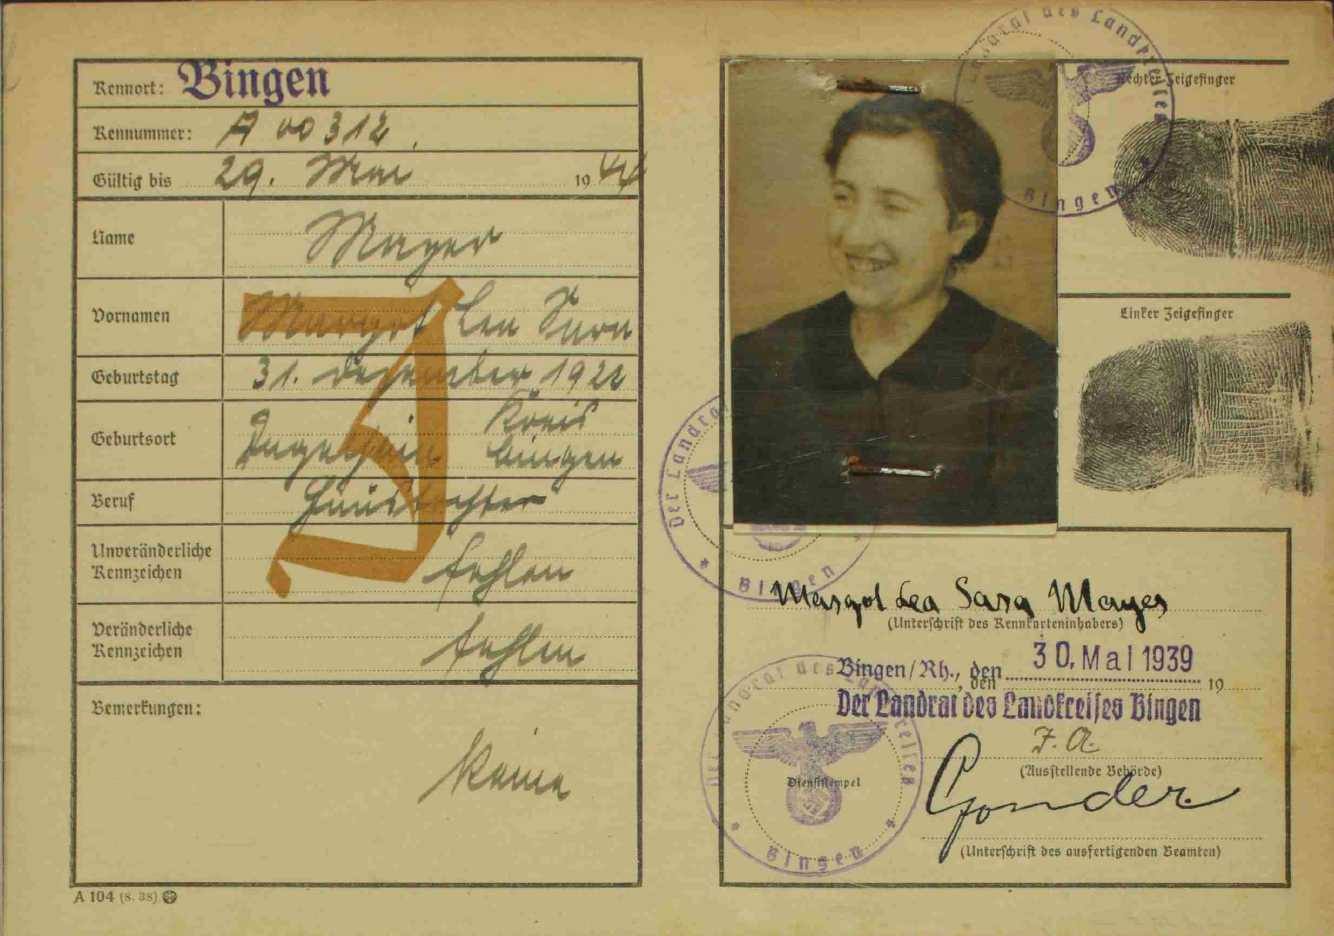 Kennort: Bingen
Kennummer: A 00312
Gültig bis 29. Mai 1944
Name Mayer
Vornamen Margot Lea Sara
Geburtstag 31. Dezember 1922
Geburtsort Ingelheim Kreis Bingen
Beruf Haustochter
Unveränderliche Kennzeichen fehlen
Veränderliche Kennzeichen fehlen
Bemerkungen:
keine
J
A 104 (8. 38)
Rechter Zeigefinger
Linker Zeigefinger
Der Landrat des Landkreises
Bingen
Der Landrat
Bingen
Margot Lea Sara Mayer
(Unterschrift des Kennkarteninhabers)
Bingen/Rh., den 30. Mai 1939
, den 19
Der Landrat des Landkreises Bingen
J. A.
(Ausstellende Behörde)
Gonder
(Unterschrift des ausfertigenden Beamten)
Der Landrat des Landkreises
Dienststempel
Bingen